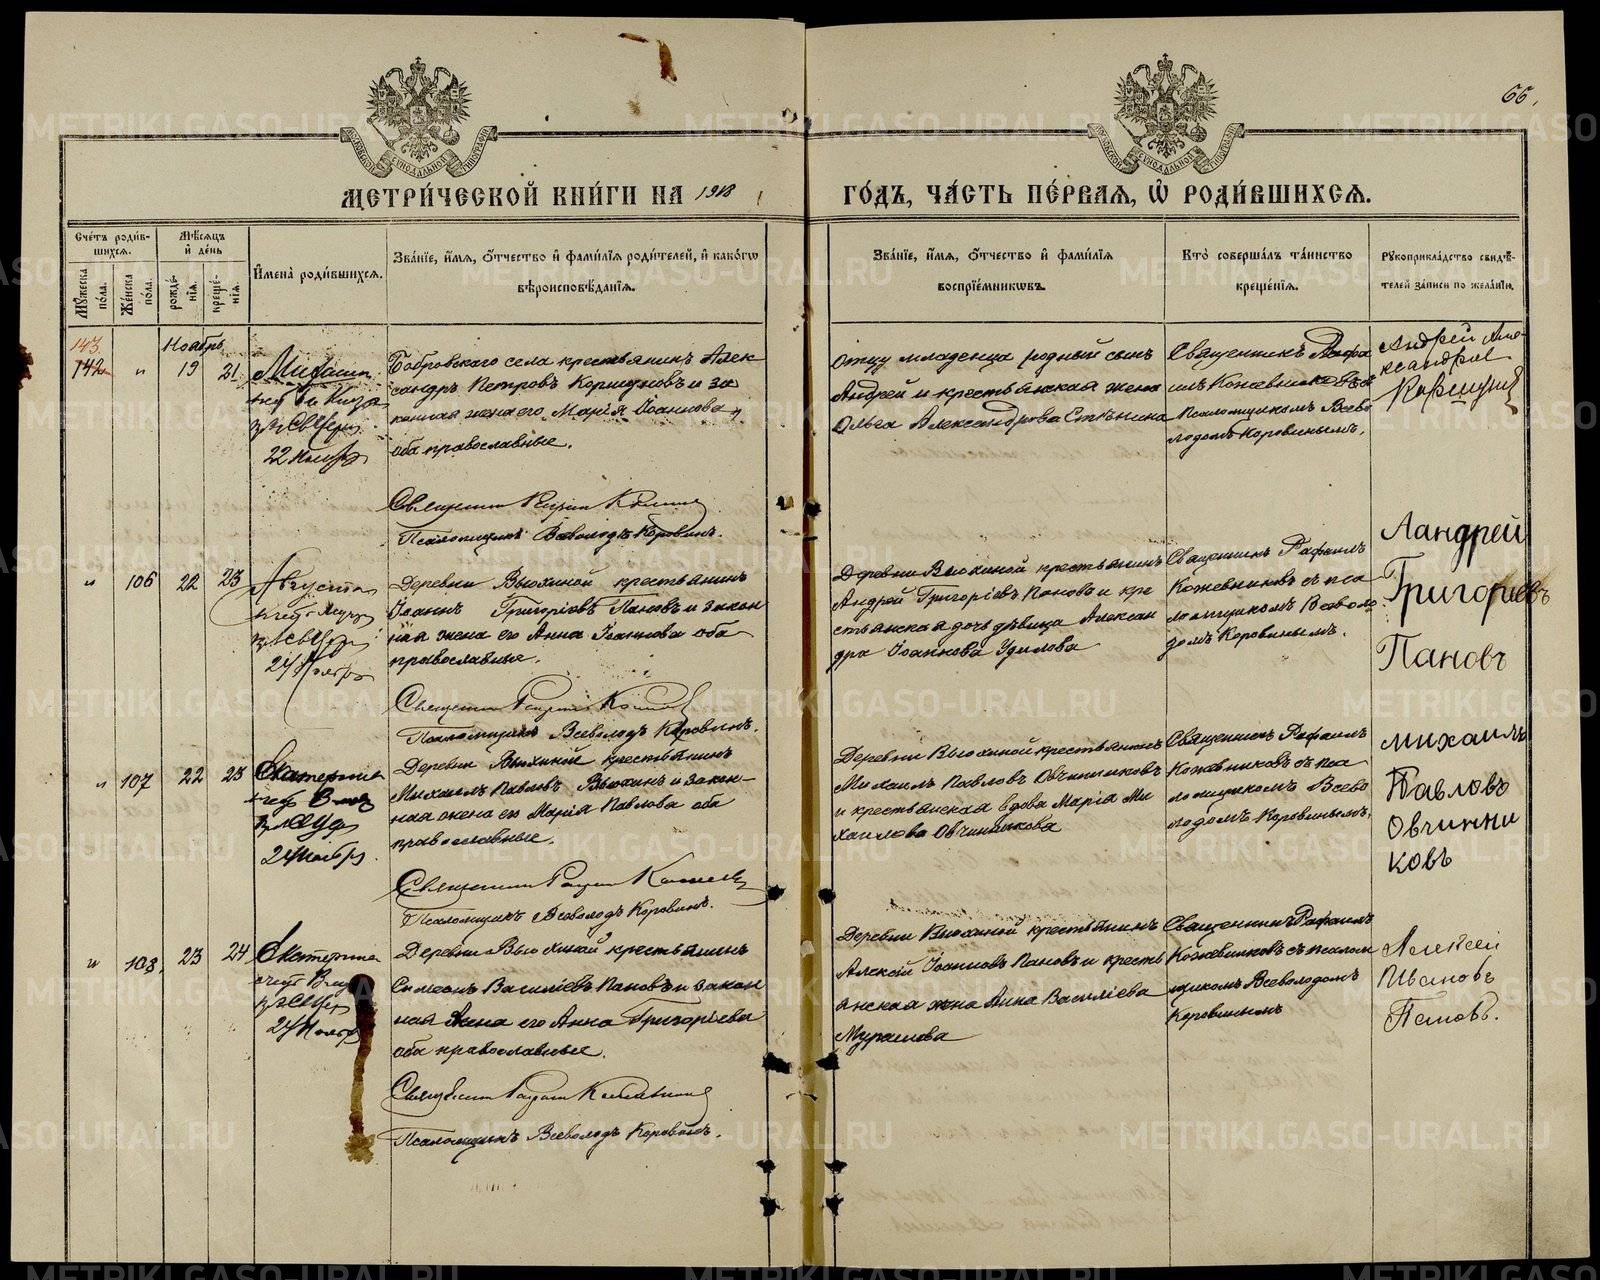 66.
МЕТРИ́ЧЕСКОЙ КНИ́ГИ НА 1918
ГО́ДЪ, ЧА́СТЬ ПЕ́РВАЯ, Ѡ҆ РОДИ́ВШИХСЯ.
Сче́тъ роди́в-
шихся.
Мꙋ́жеска по́ла.
Же́нска по́ла.
Мѣ́сяцъ
и҆ де́нь
рожде́-
нїя.
креще́-
нїя.
И҆мена̀ роди́вшихся.
Зва́нїе, и҆́мя, ѻ҆́тчество и҆ фами́лїя роди́телей, и҆ како́гѡ
вѣроисповѣ́данїя.
Зва́нїе, и҆́мя, ѻ҆́тчество и҆ фами́лїя
воспрїе́мникѡвъ.
Кто̀ соверша́лъ та́инство
креще́нїя.
Рꙋкоприкла́дство свидѣ́-
телей за́писи по жела́нїю.
Ноябрь
143
142 " 19 21
22 Ноября
Бобровскаго села крестьянинъ Алек
сандръ Петровъ Коршуновъ и за
конная жена его Марія Іоаннова
оба православные.
Священникъ
Псаломщикъ Всеволодъ Коровинъ.
отцу младенца родный сынъ
Андрей и крестьянская жена
Ольга Александрова Стѣнина
Священникъ Рафа
илъ Кожевниковъ съ
Псаломщикомъ Всево
лодомъ Коровинымъ.
Андрей Але-
ксандров
Коршунов
" 106 22 23
Августа
24 Ноября
Деревни Вьюхиной крестьянинъ
Іоаннъ Григоріевъ Пановъ и закон
ная жена его Анна Іоаннова оба
православные.
Священникъ
Псаломщикъ Всеволодъ Коровинъ.
Деревни Вьюхиной крестьянинъ
Андрей Григоріевъ Пановъ и кре
стьянская дочь дѣвица Алексан
дра Іоаннова Удилова
Священникъ Рафаилъ
Кожевниковъ съ пса
ломщикомъ Всеволо
домъ Коровинымъ.
Андрей
Григориевъ
Пановъ
" 107 22 23
Екатерина
24 Ноября
Деревни Вьюхиной крестьянинъ
Михаилъ Павловъ Вьюхинъ и закон-
ная жена его Марія Павлова оба
православные.
Священникъ
Псаломщикъ Всеволодъ Коровинъ.
Деревни Вьюхиной крестьянинъ
Михаилъ Павловъ Овчинниковъ
и крестьянская вдова Марія Ми
хаилова Овчинникова
Священникъ Рафаилъ
Кожевниковъ съ пса
ломщикомъ Всево
лодомъ Коровинымъ.
Михаилъ
Павловъ
Овчинни
ковъ
" 108 23 24
Екатерина
24 Ноября
Деревни Вьюхиной крестьянинъ
Симеонъ Василіевъ Пановъ и закон
ная жена его Анна Григоріева
оба православные.
Священникъ
Псаломщикъ Всеволодъ Коровинъ.
Деревни Вьюхиной крестьянинъ
Алексѣй Іоанновъ Пановъ и кресть
янская жена Анна Василіева
Мурашова
Священникъ Рафаилъ
Кожевниковъ съ псалом
щикомъ Всеволодомъ
Коровинымъ
Алексей
Ивановъ
Пановъ.
METRIKI.GASO-URAL.RU